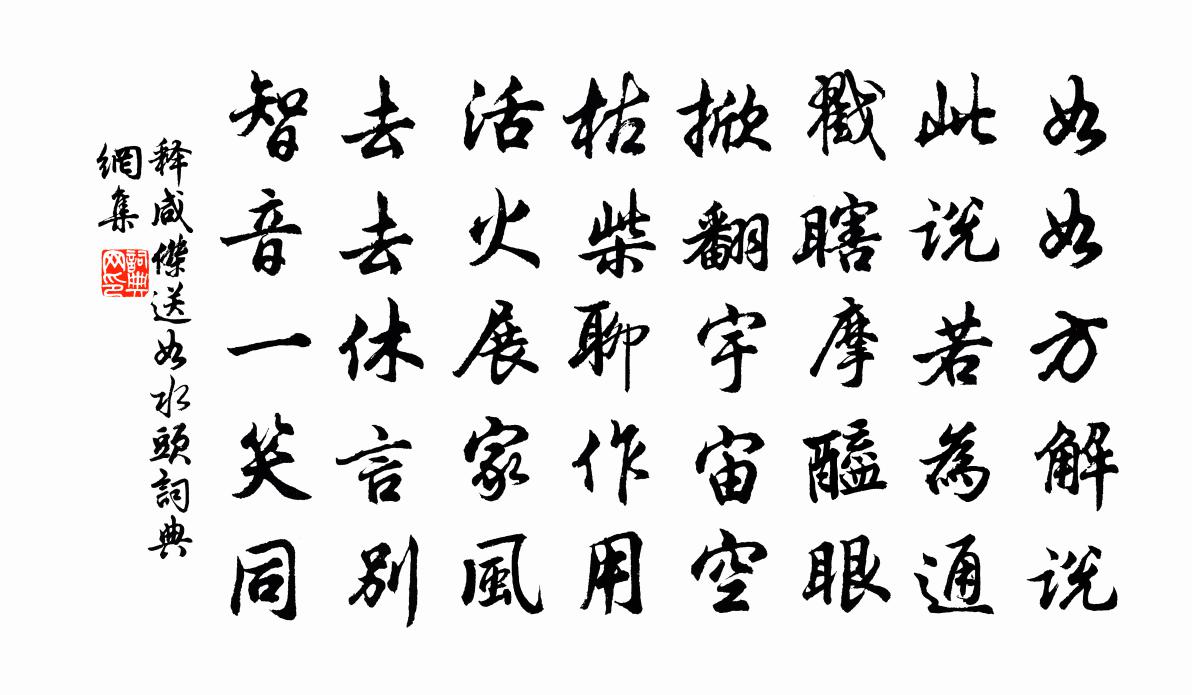 如如方解説
此説若為通
戳瞎摩醯眼
掀翻宇宙空
枯柴聊作用
活火展家風
去去休言别
智音一笑同
释咸傑送如水頭詞典
網集
詞典
网印